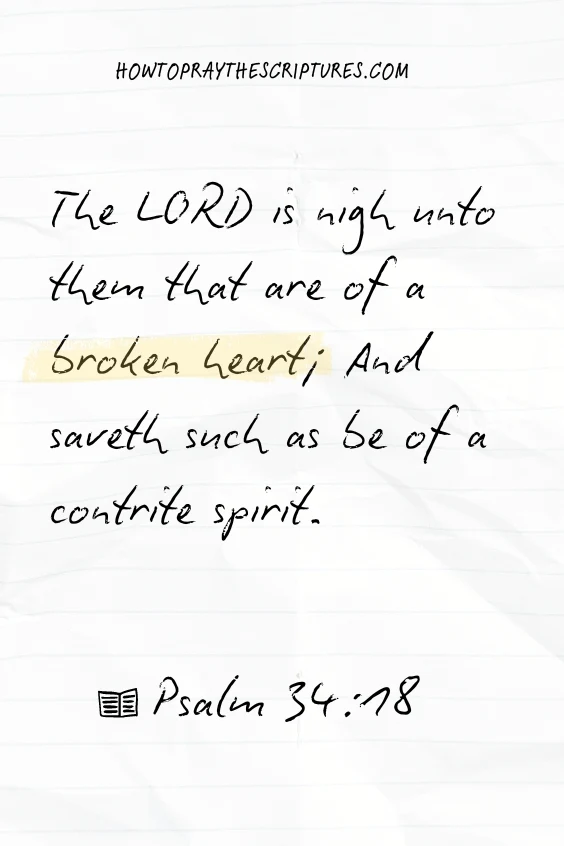 HOWTOPRAYTHESCRIPTURES.COM
The LORD is nigh unto
them that are of a
broken heart; And
saveth such as be of a
contrite spirit.
Psalm 34:18